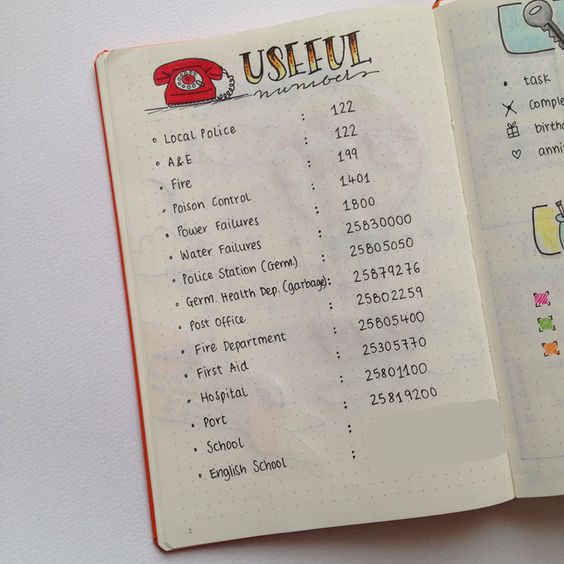 USEFUL
numbers
• Local Police : 122
• A&E : 122
• Fire : 199
• Poison Control : 1401
• Power Failures : 1800
• Water Failures : 25830000
• Police Station (Germ.) : 25805050
• Germ. Health Dep. (garbage) : 25879276
• Post Office : 25802259
• Fire Department : 25805400
• First Aid : 25305770
• Hospital : 25801100
• Port : 25819200
• School :
• English School :
2
• task
comple
birth
anni